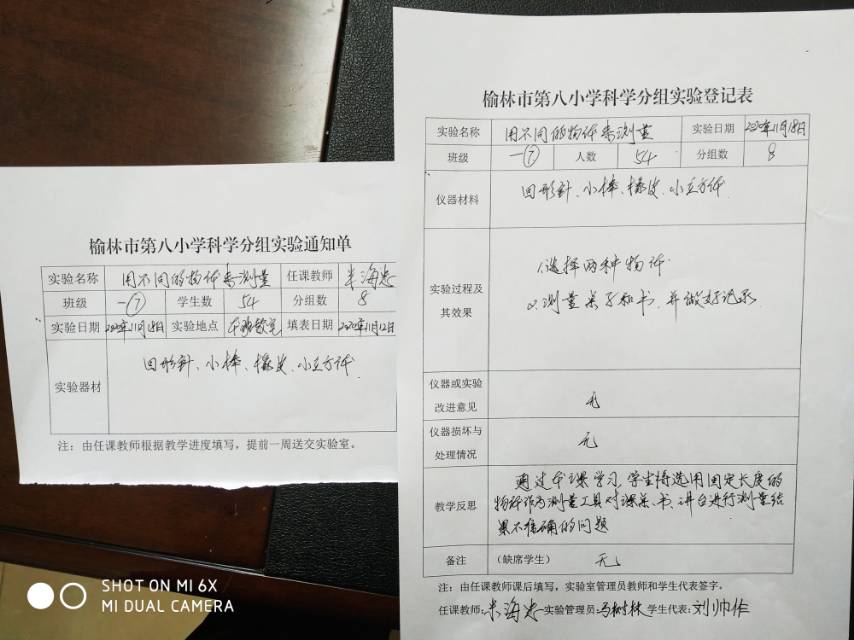 榆林市第八小学科学分组实验通知单
实验名称 用不同的物体来测量 任课教师 米海忠
班级 一⑦ 学生数 54 分组数 8
实验日期 2020年11月18日 实验地点 本班教室 填表日期 2020年11月12日
实验器材 回形针、小棒、橡皮、小立方体
注：由任课教师根据教学进度填写，提前一周送交实验室。
榆林市第八小学科学分组实验登记表
实验名称 用不同的物体来测量 实验日期 2020年11月18日
班级 一⑦ 人数 54 分组数 8
仪器材料 回形针、小棒、橡皮、小立方体
1.选择两种物体
实验过程及
其效果
2.测量桌子和书，并做好记录
仪器或实验
改进意见
无
仪器损坏与
处理情况
无
教学反思
通过本课学习，学生将选用固定长度的
物体作为测量工具对课桌、书、讲台进行测量结
果不准确的问题
备注 （缺席学生） 无
注：由任课教师课后填写，实验室管理员教师和学生代表签字。
任课教师：米海忠 实验管理员：冯树林 学生代表：刘帅作
SHOT ON MI 6X
MI DUAL CAMERA